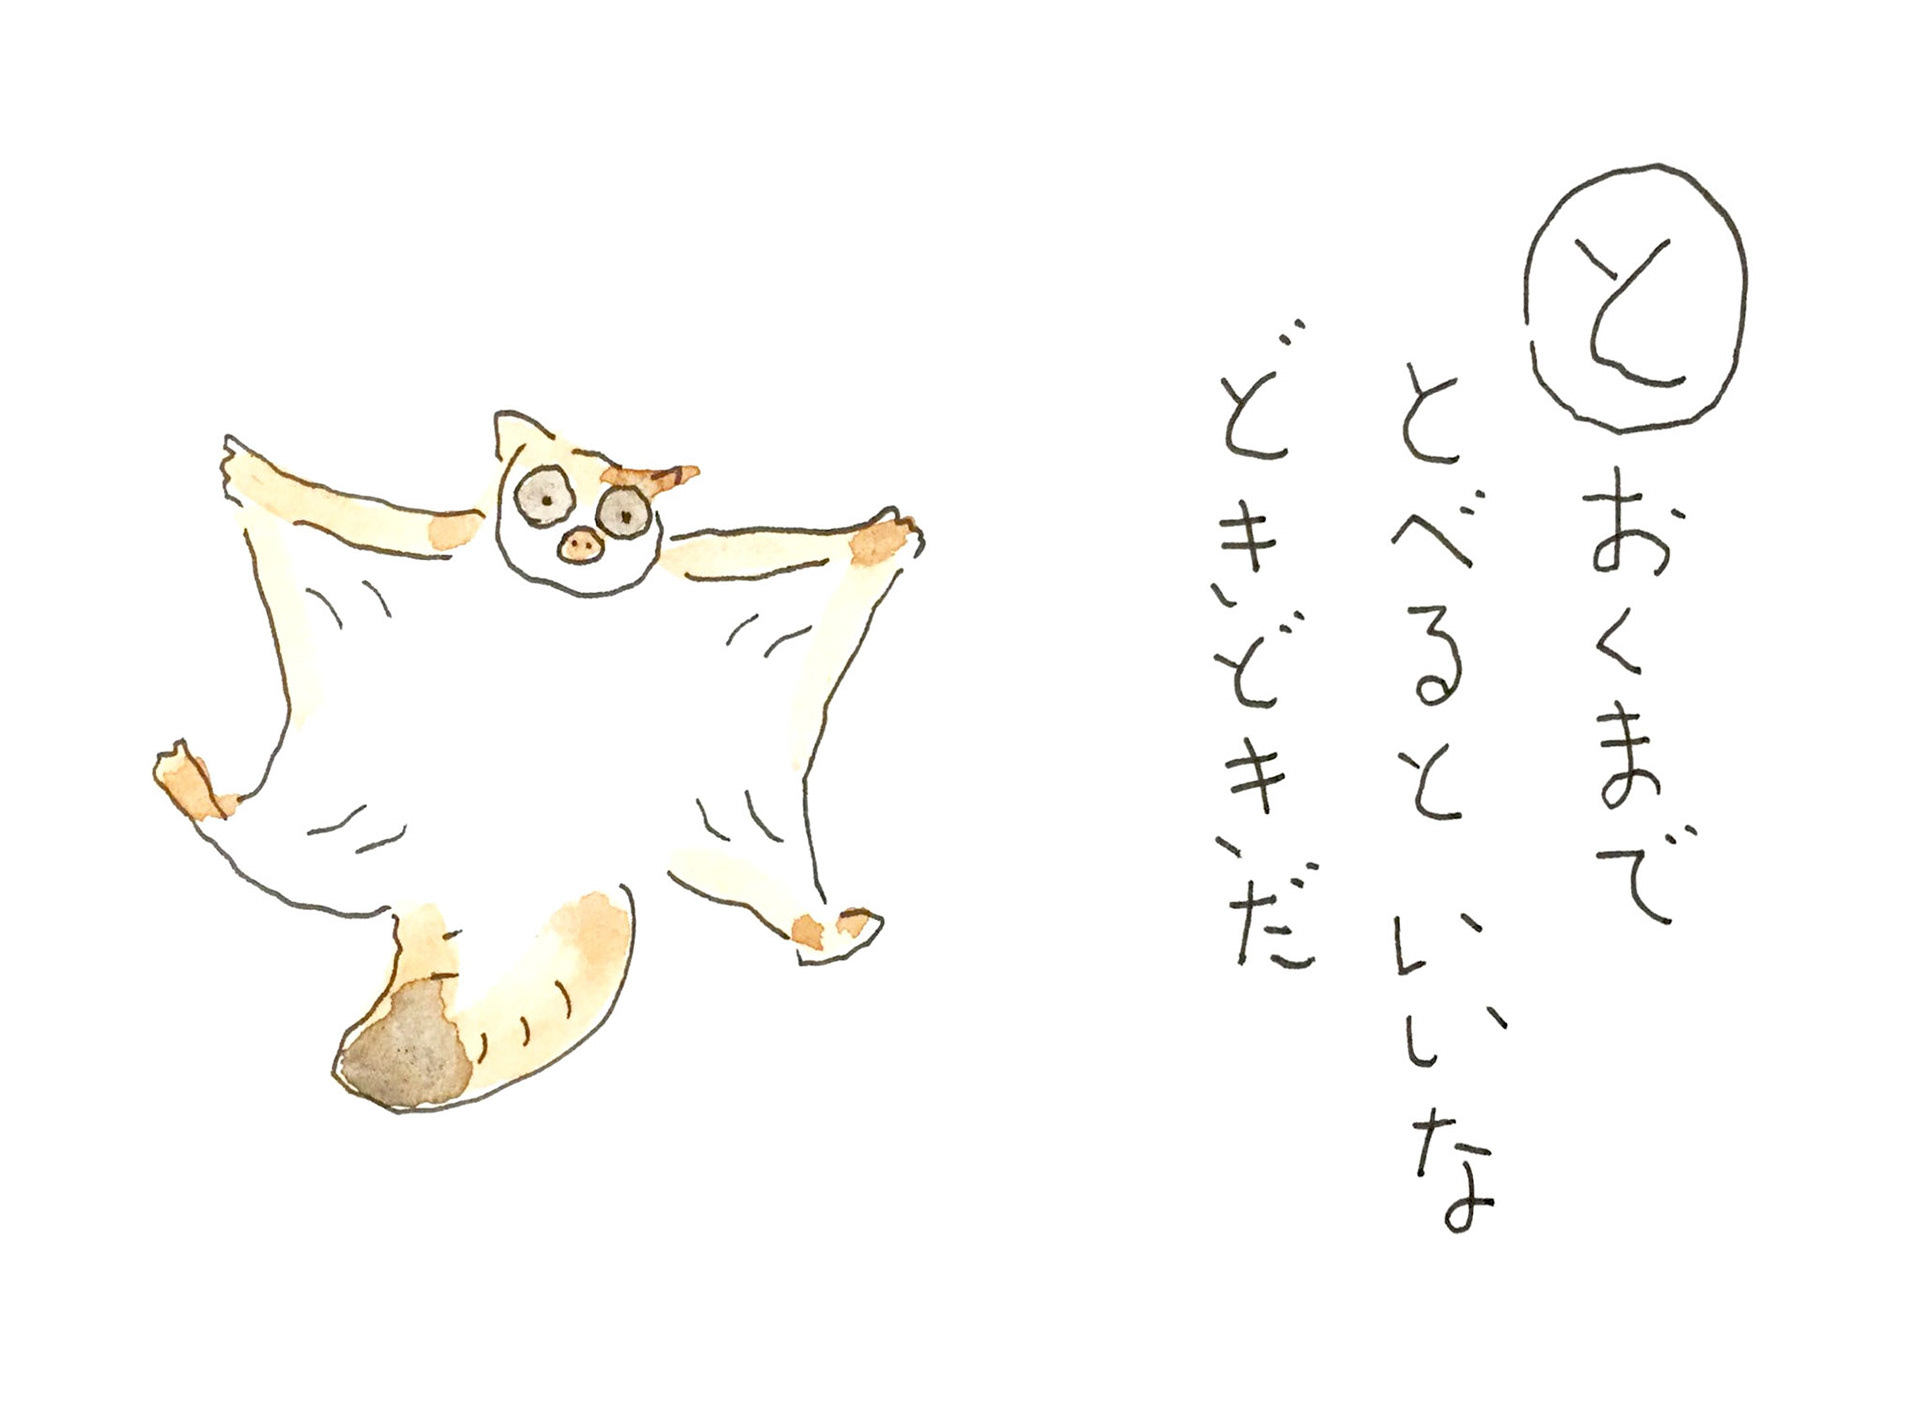 とおくまで
とべると いいな
どきどきだ